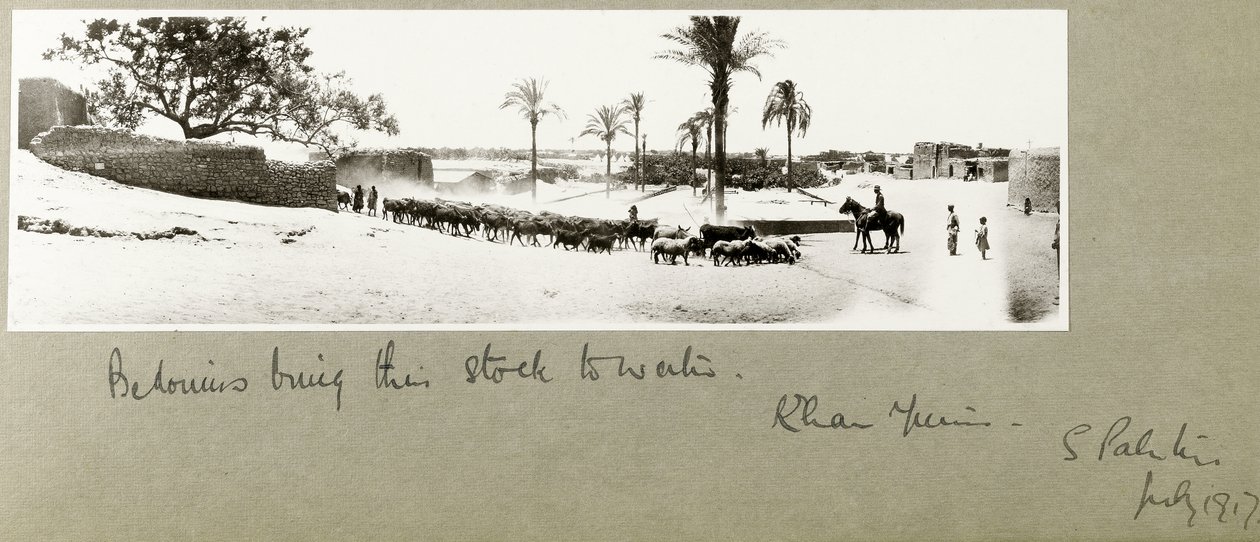 Bedouins bring their stock to water.
Khan Yunis -
S Palestine
July 1917